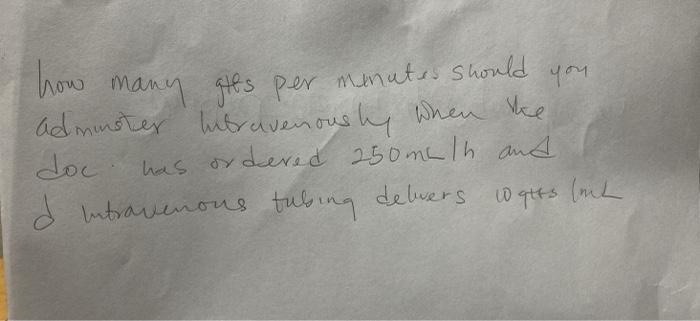 how many gtts per minutes should you
administer Intravenously when the
doc. has ordered 250mL/h and
d Intravenous tubing delivers 10 gtts/mL